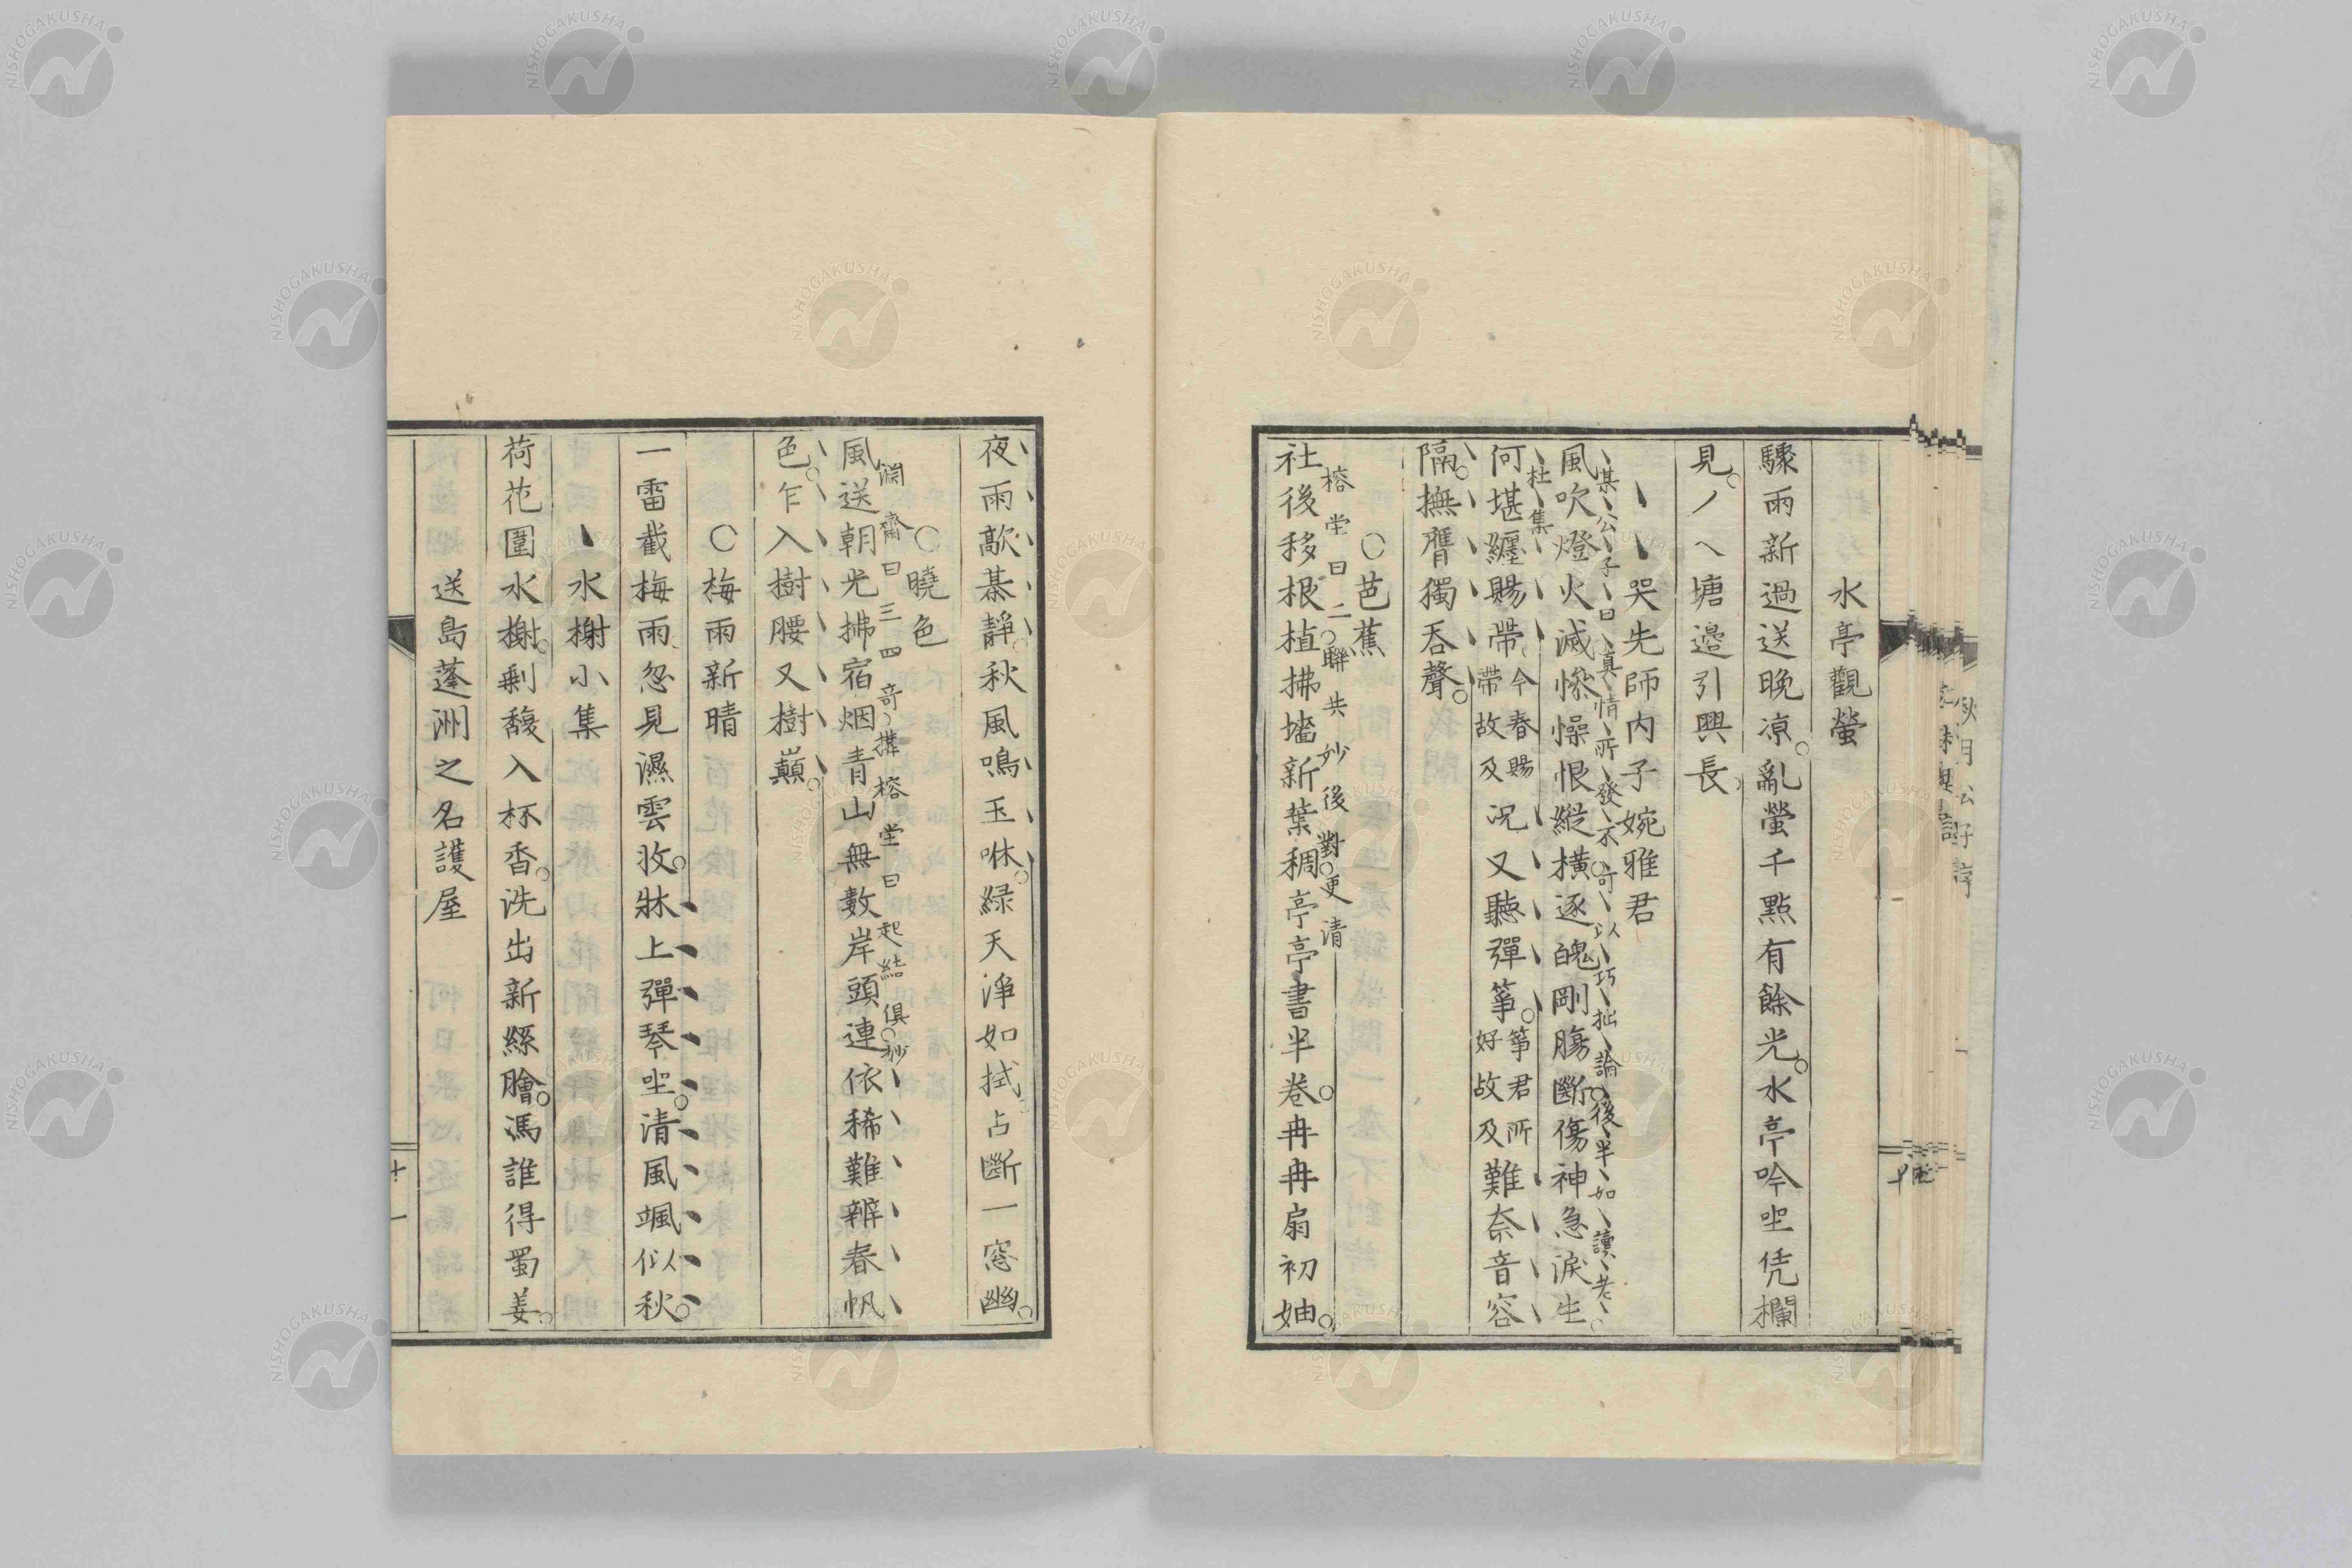 水亭觀螢
驟雨新過送晚凉亂螢千點有餘光水亭吟坐凭欄
見ノ〵塘邉引興長
哭先師内子婉雅君
某公子曰真情所發不可以巧拙論後半如讀老
杜集
風吹燈火滅惨懆恨縦横逐魄剛膓斷傷神急淚生
何堪纏賜帶今春賜帶故及况又聽彈箏箏君所好故及難奈音容
隔撫膺獨呑聲
〇芭蕉
榕堂曰二聯共妙後對更清
社後移根植拂墻新葉稠亭亭書半卷冉冉扇初妯
夜雨歊棊靜秋風鳴玉咻緑天淨如拭占斷一窓幽
〇曉色
淵齋曰三四奇搆榕堂曰起結俱妙
風送朝光拂宿烟青山無數岸頭連依稀難辨春帆
色乍入樹腰又樹巓
〇梅雨新晴
一雷截梅雨忽見濕雲收牀上彈琴坐清風颯似秋
水榭小集
荷花圍水榭剩馥入杯香洗出新絲膾馮誰得蜀姜
送島蓬洲之名護屋
十一
NISHOGAKUSHA